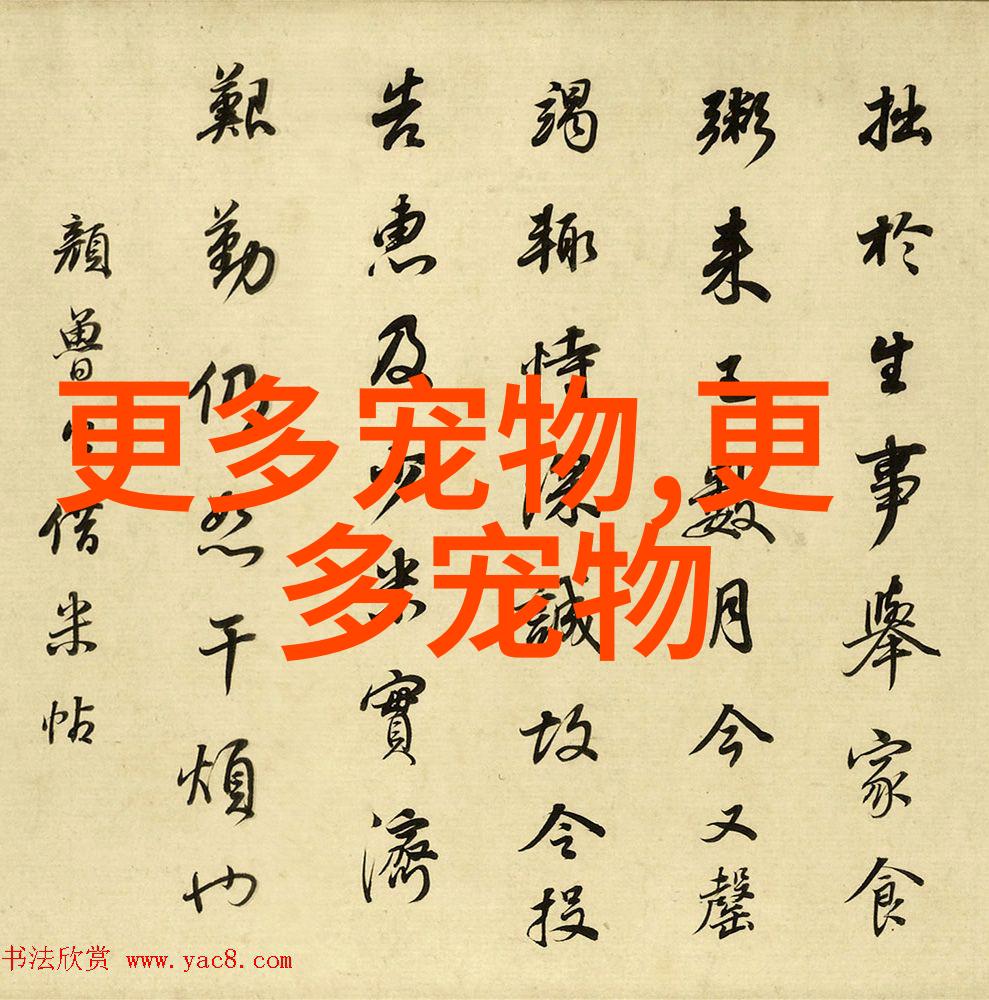 拙於生事舉家食
粥来已數月今又罄
竭輙恃深誠故令投
告惠及少米實濟
艱勤仍恕干煩也
顏魯公借米帖
更多宠物,更
多宠物
书法欣赏 www.yac8.com